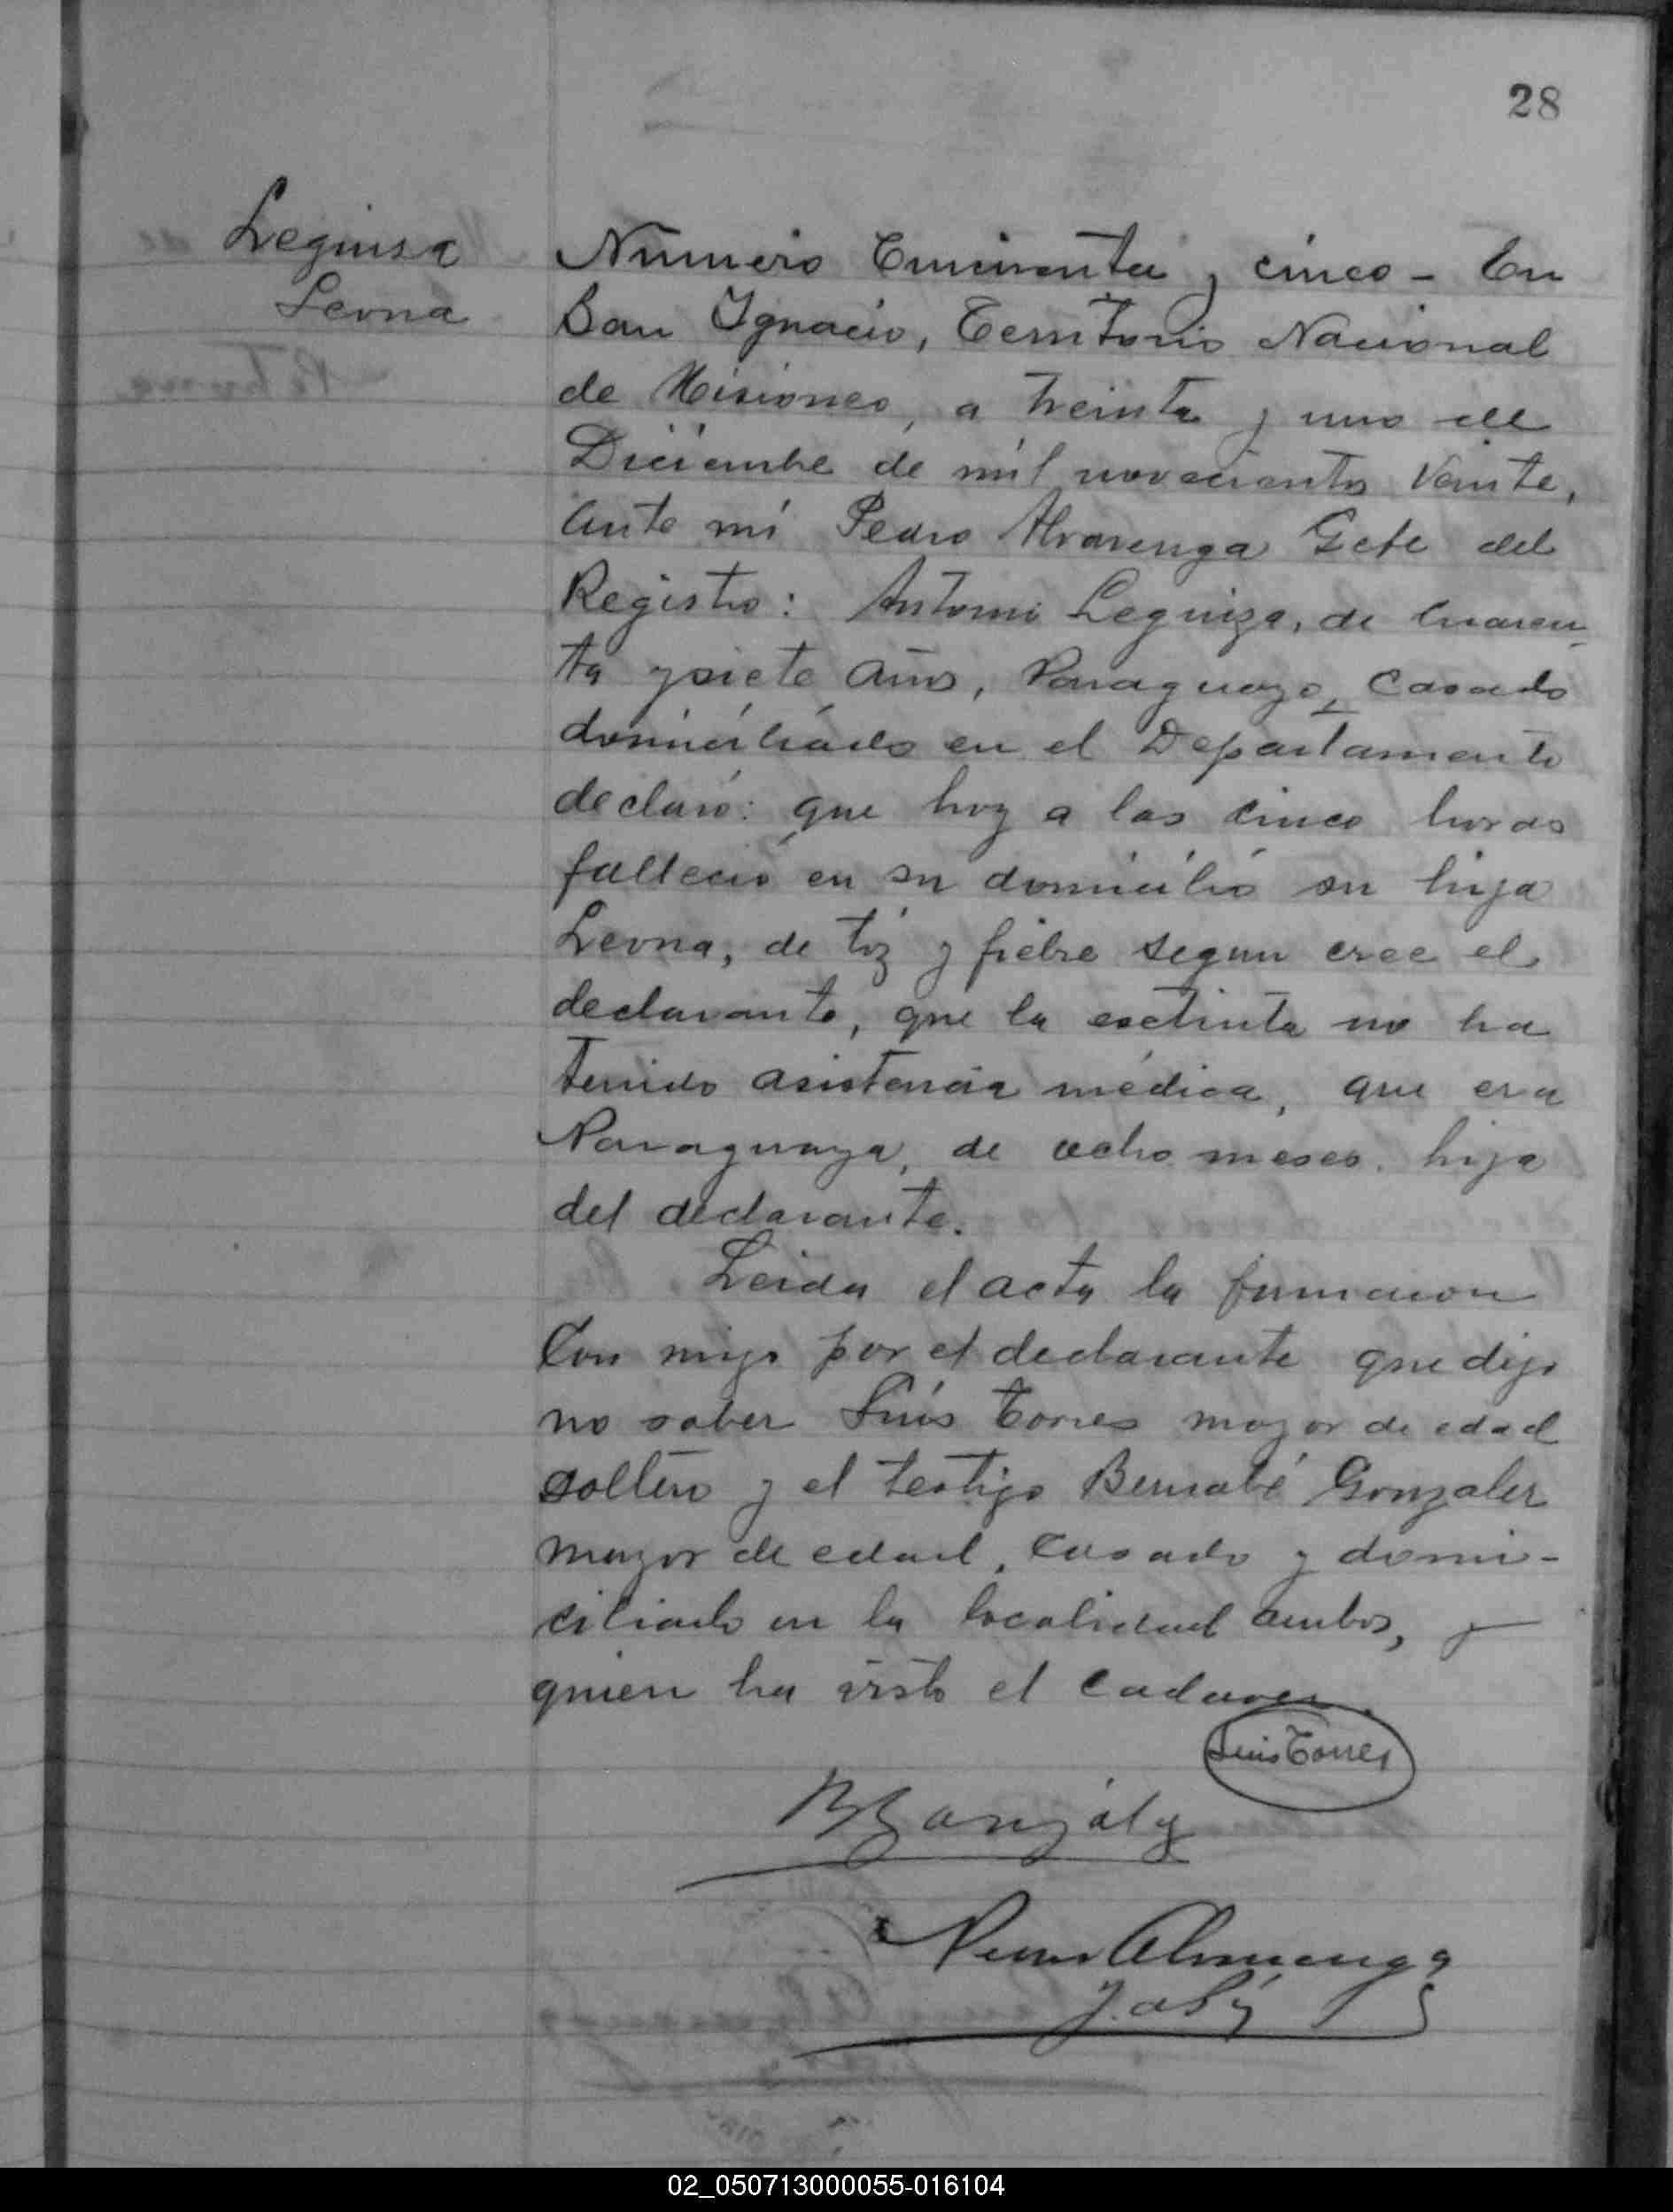 28
Leguisa
Leona
Número Cincuenta y cinco - En
San Ignacio, Territorio Nacional
de Misiones, a treinta y uno de
Diciembre de mil novecientos veinte,
ante mí Pedro Alvarenga Gefe del
Registro: Antonio Leguiza, de cuaren
ta y siete años, Paraguayo, casado
domiciliado en el Departamento
declaró: que hoy a las cinco horas
falleció en su domicilio su hija
Leona, de tóz y fiebre segun cree el
declarante, que la exctinta no ha
tenido asistencia médica, que era
Paraguaya, de ocho meses, hija
del declarante.
Leida el acta la firmaron
Con migo por el declarante que dijo
no saber Luís Torres mayor de edad
soltero y el testigo Bernabé Gonzalez
mayor de edad, casado y domi-
ciliado en la localidad ambos, y
quien ha visto el cadaver.
Luis Torres
B Gonzalez
Pedro Alvarenga
02_050713000055-016104